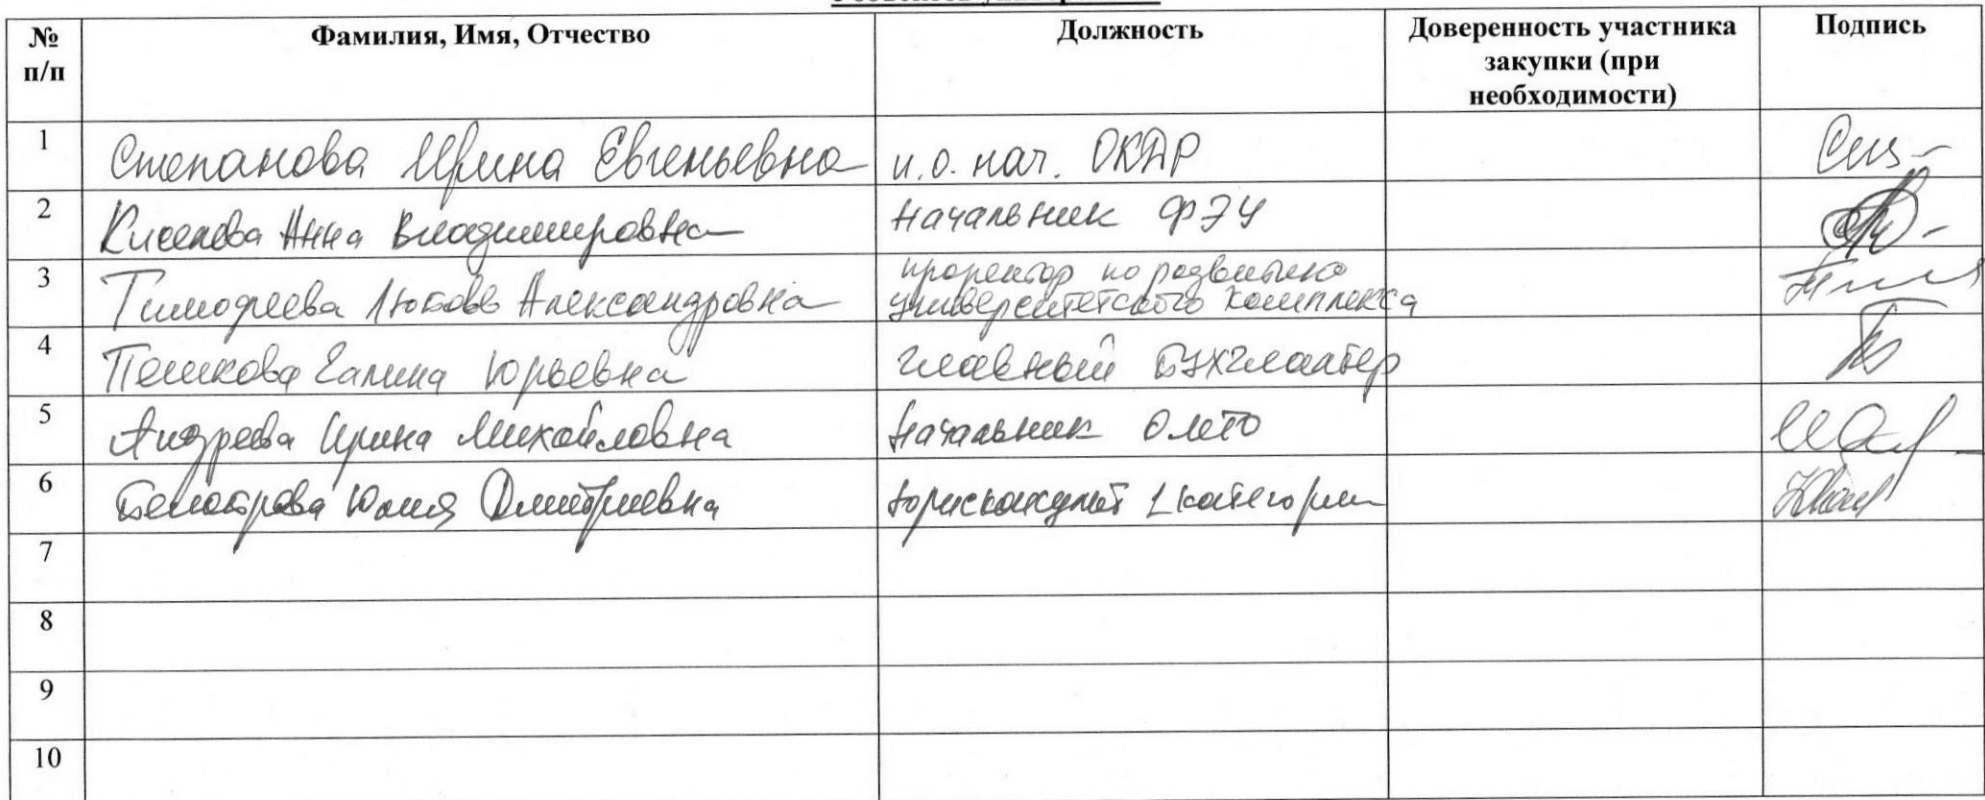 № п/п Фамилия, Имя, Отчество Должность Доверенность участника закупки (при необходимости) Подпись
1 Степанова Ирина Евгеньевна и.о. нач. ОКДР
2 Киселева Анна Владимировна Начальник ФЭУ
3 Тимофеева Любовь Александровна проректор по развитию университетского комплекса
4 Пешкова Галина Юрьевна главный бухгалтер
5 Андреева Ирина Михайловна Начальник ОМТО
6 Юлия Дмитриевна Юрисконсульт 1 категории
7
8
9
10